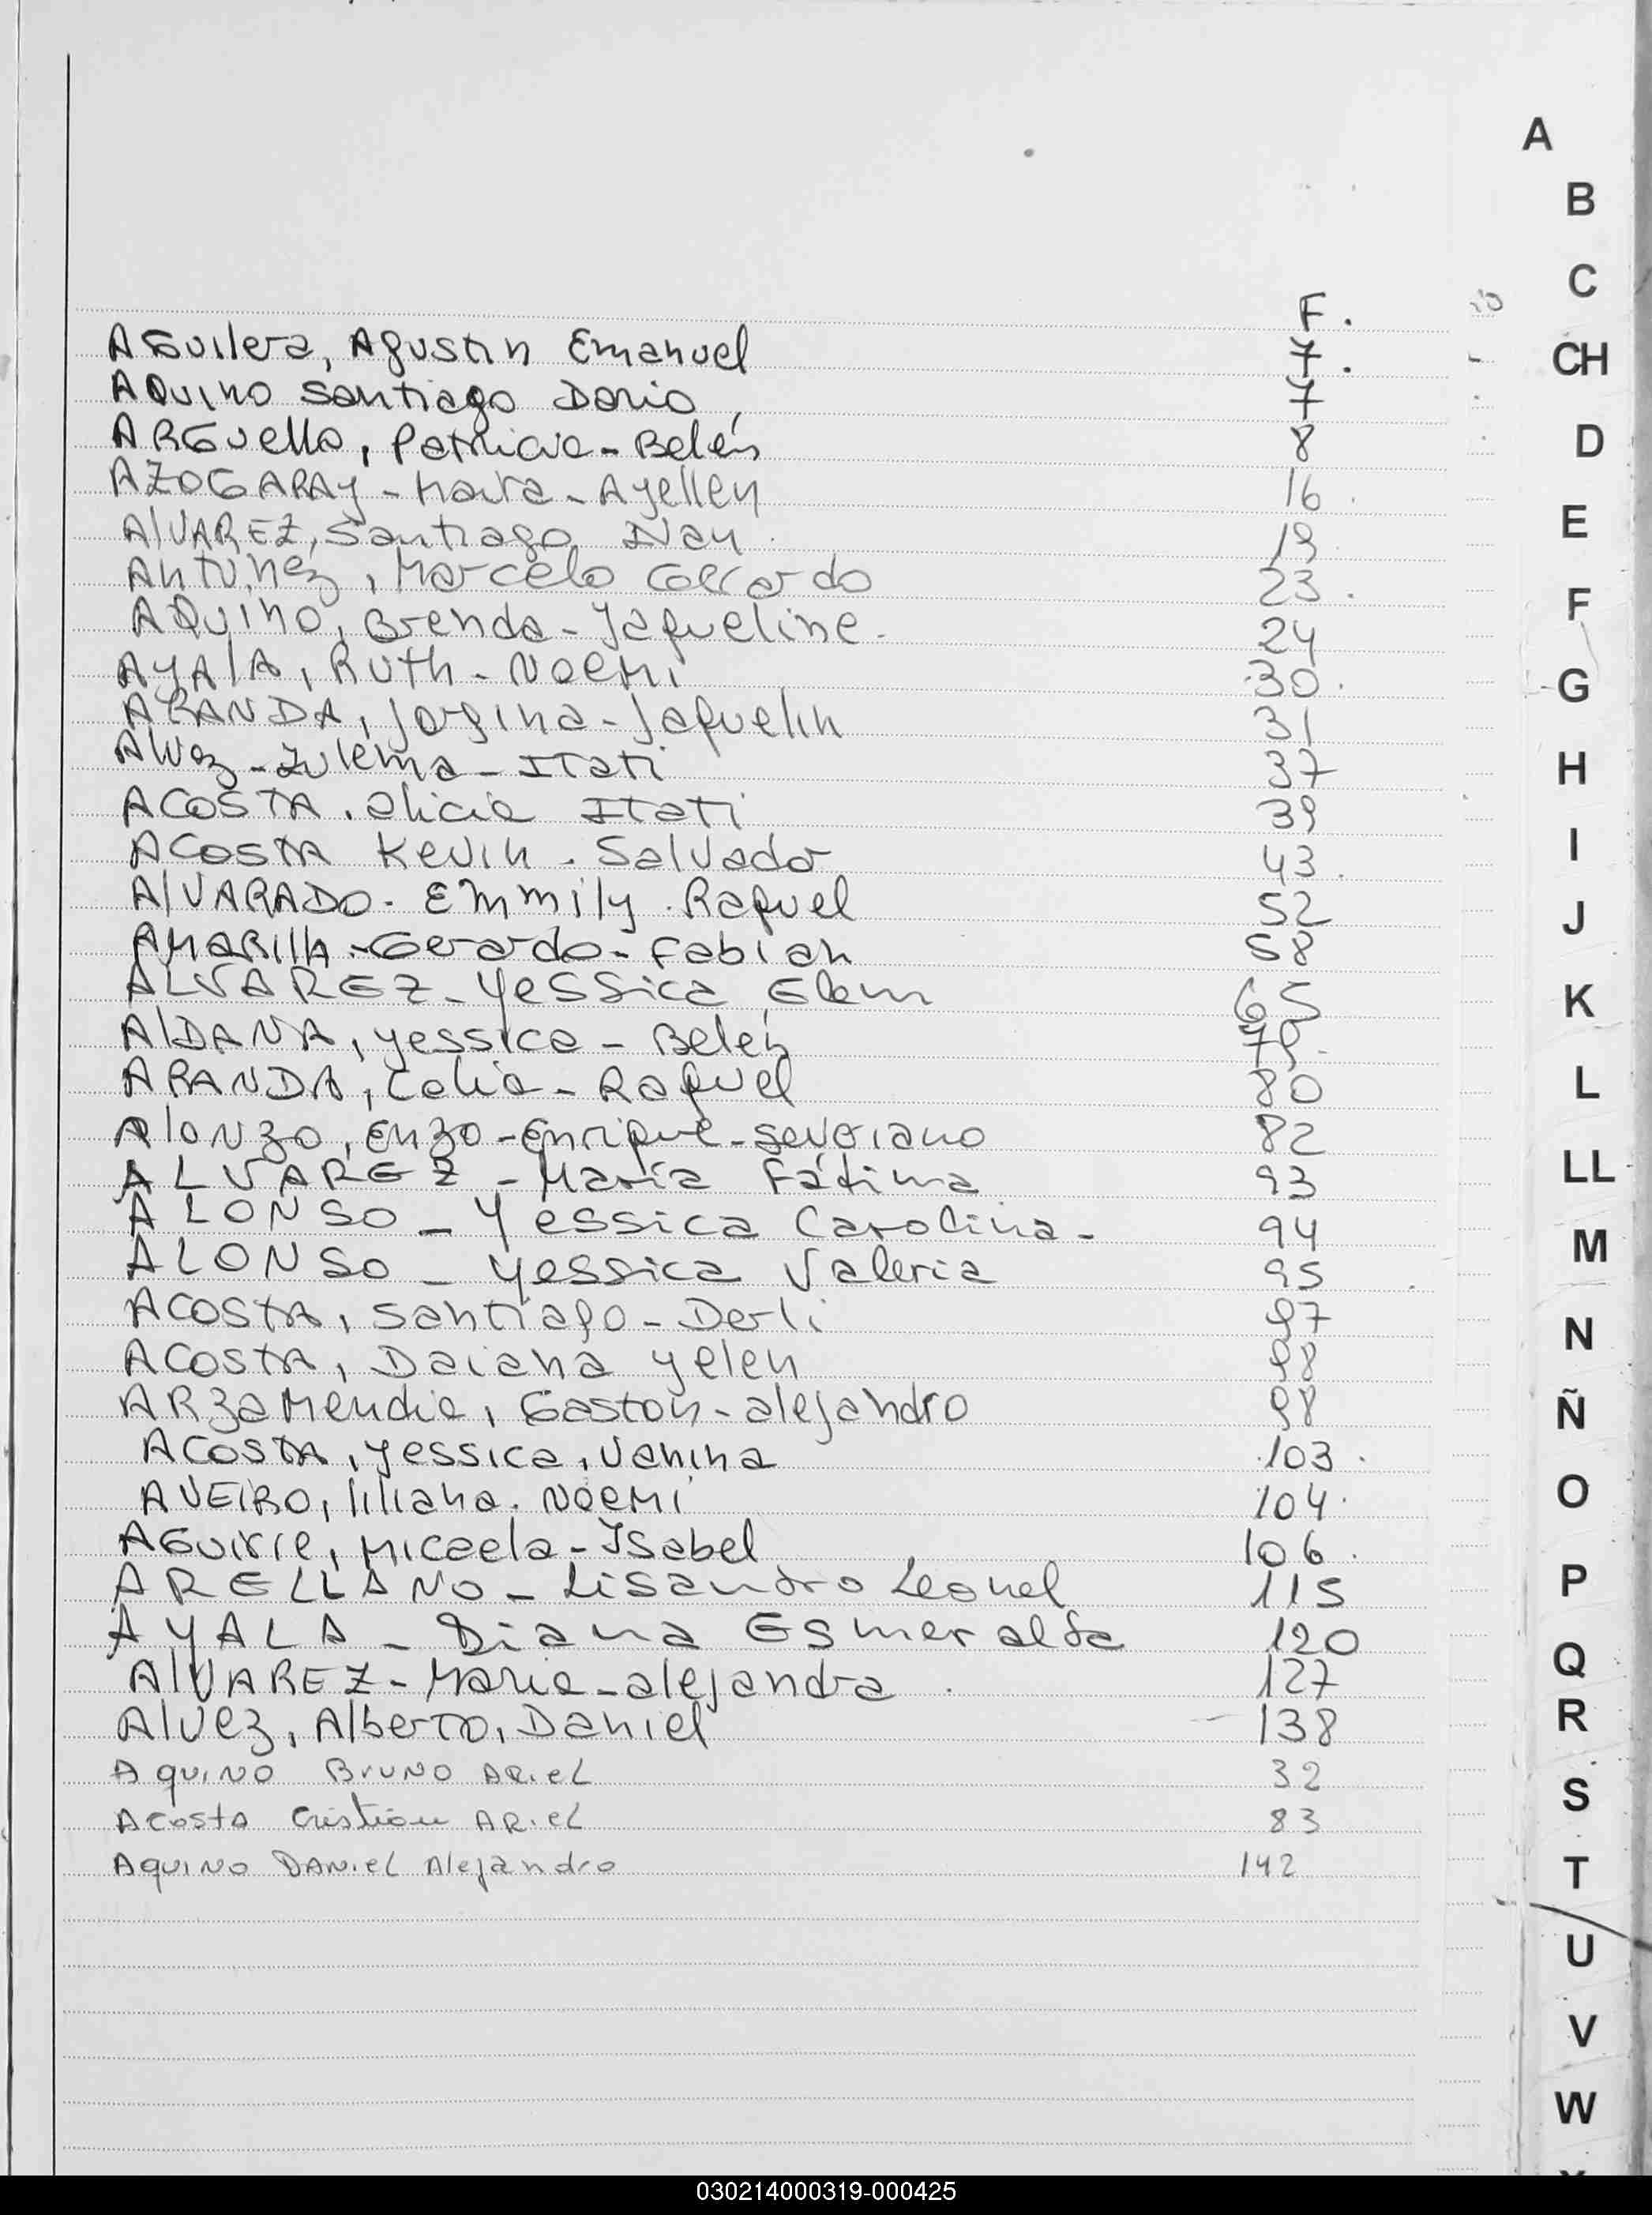 F.
AGuilera, Agustin Emanuel 7.
AQuino Santiago Dario 7
ARGuello, Patricia - Belén 8
AZOGARAY - Maira - Ayelley 16.
AlVAREZ, Santiago Ivan. 19
Antunez, Marcelo Gerardo 23.
AQuino, Brenda - Jaqueline. 24
AYAlA, Ruth - Noemi 30.
ARANDA, Jorgina - Jaquelin 31
Alvez - Zulema - Itati 37
ACOSTA. Alicia Itati 39
ACOSTA Kevin. Salvador 43.
AlVARADO. Emmily. Raquel 52
AMARIllA. Gerardo - Fabian 58
ALVAREZ - Yessica Elem 65
AlDANA, yessica - Belén 79.
ARANDA, Celia - Raquel 80
Alonzo, Enzo - Enrique - Severiano 82
ALVAREZ - María Fátima 93
ALONSO - Yessica Carolina - 94
ALONSO - Yessica Valeria 95
ACOSTA, Santiago - Derli 97
ACOSTA, Daiana yelen 98
ARzaMendia, Gaston - alejandro 98
ACOSTA, yessica, Vanina 103.
AVEIRO, liliana. Noemi 104.
AGuirre, Micaela - Isabel 106.
ARELLANO - Lisandro Leonel 115
AYALA - Diana Esmeralda 120
AlVAREZ - Maria - alejandra. 127
Alvez, Alberto, Daniel 138
Aquino Bruno Ariel 32
Acosta Cristian Ariel 83
Aquino Daniel Alejandro 142
A
B
C
CH
D
E
F
G
H
I
J
K
L
LL
M
N
Ñ
O
P
Q
R
S
T
U
V
W
030214000319-000425